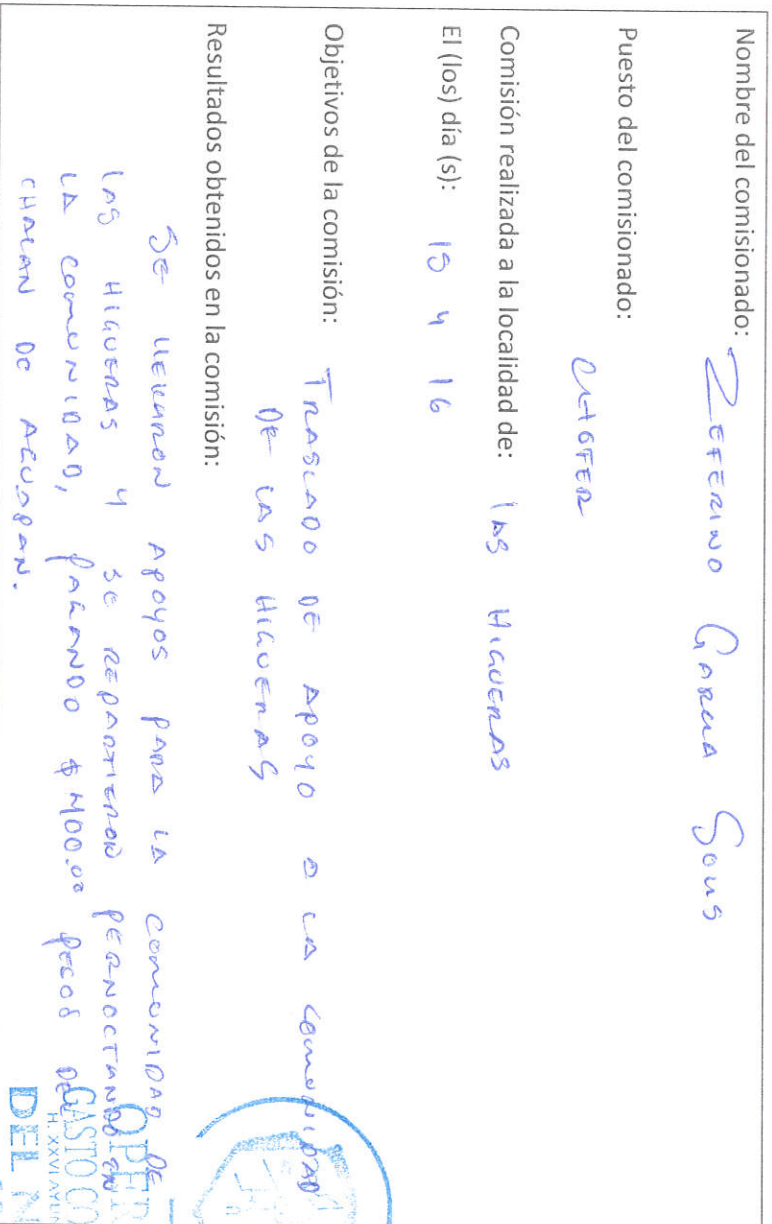 Nombre del comisionado: ZEFERINO GARCIA SOLIS
Puesto del comisionado:
CHOFER
Comisión realizada a la localidad de: LAS HIGUERAS
El (los) día (s): 15 y 16
Objetivos de la comisión: TRASLADO DE APOYO A LA COMUNIDAD
DE LAS HIGUERAS
Resultados obtenidos en la comisión:
SE LLEVARON APOYOS PARA LA COMUNIDAD DE
LAS HIGUERAS Y SE REPARTIERON PERNOCTANDO EN
LA COMUNIDAD, PAGANDO $ 400.00 PESOS DEL
CHALAN DE
OPER
GASTO CO
H. XXVI AYUN
DEL N